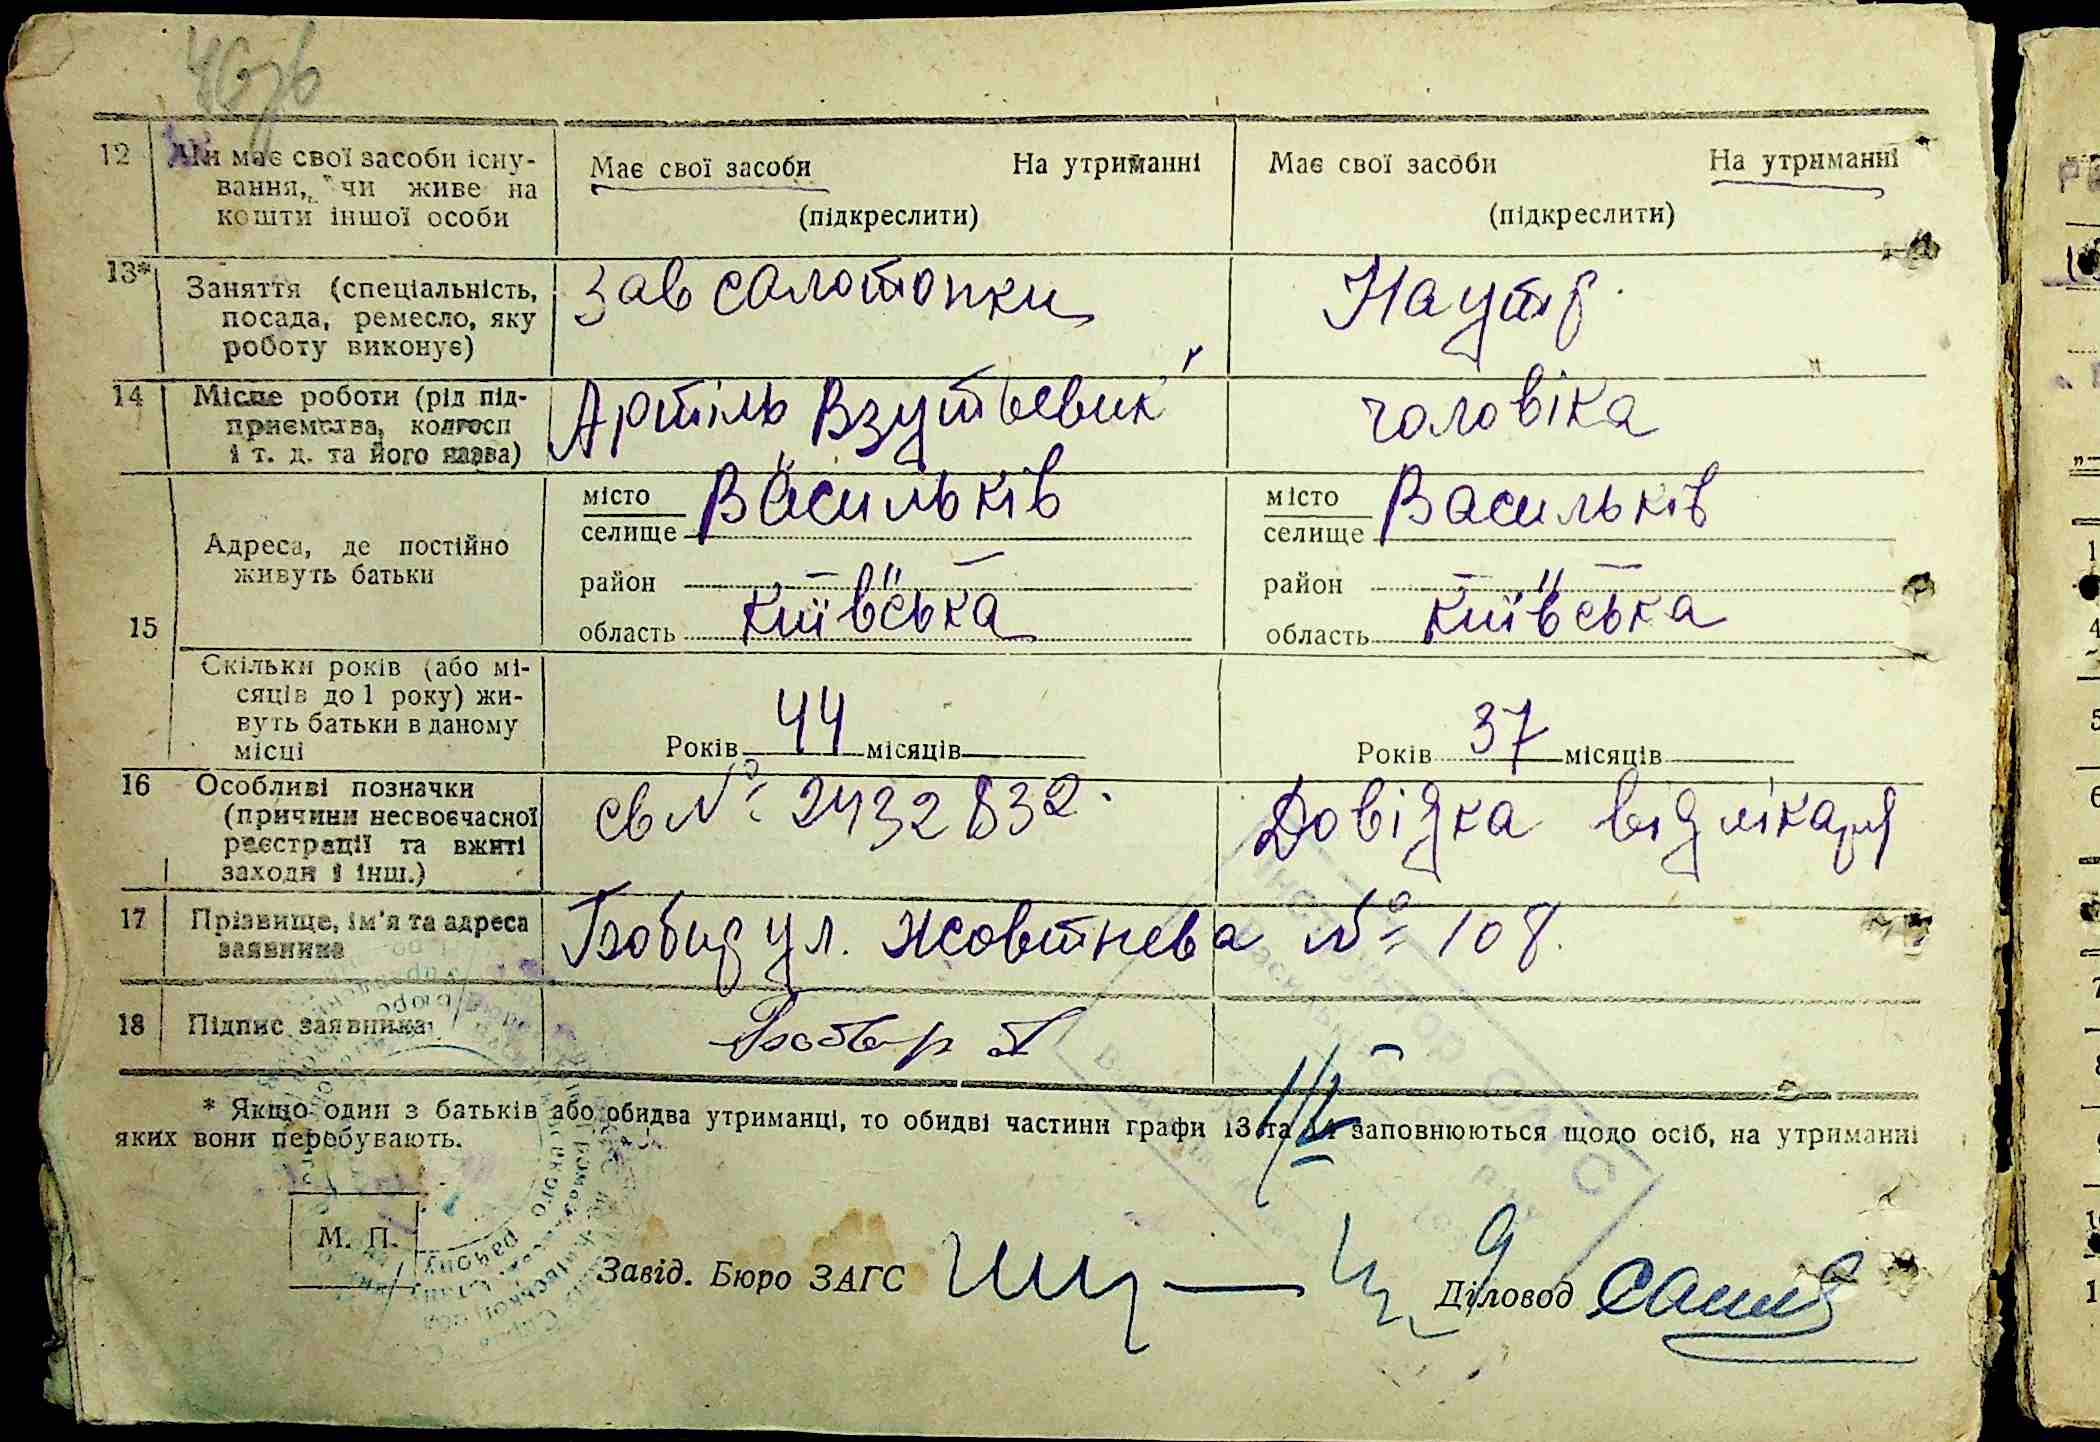 12 Чи має свої засоби існування, чи живе на кошти іншої особи
Має свої засоби На утриманні
(підкреслити)
Має свої засоби На утриманні
(підкреслити)
13* Заняття (спеціальність, посада, ремесло, яку роботу виконує)
Зав салотопки
На утр.
14 Місце роботи (рід підприємства, колгосп і т. д. та його назва)
Артіль Взутьевик
чоловіка
15 Адреса, де постійно живуть батьки
місто селище Васильків
район — " —
область Київська
місто селище Васильків
район — " —
область Київська
Скільки років (або місяців до 1 року) живуть батьки в даному місці
Років 44 місяців
Років 37 місяців
16 Особливі позначки (причини несвоєчасної реєстрації та вжиті заходи і інш.)
св № 2432832.
Довідка від лікаря
17 Прізвище, ім'я та адреса заявника
ул. Жовтнева № 108.
18 Підпис заявника
* Якщо один з батьків або обидва утриманці, то обидві частини графи 13 та 14 заповнюються щодо осіб, на утриманні
яких вони перебувають.
М. П.
Завід. Бюро ЗАГС
Діловод